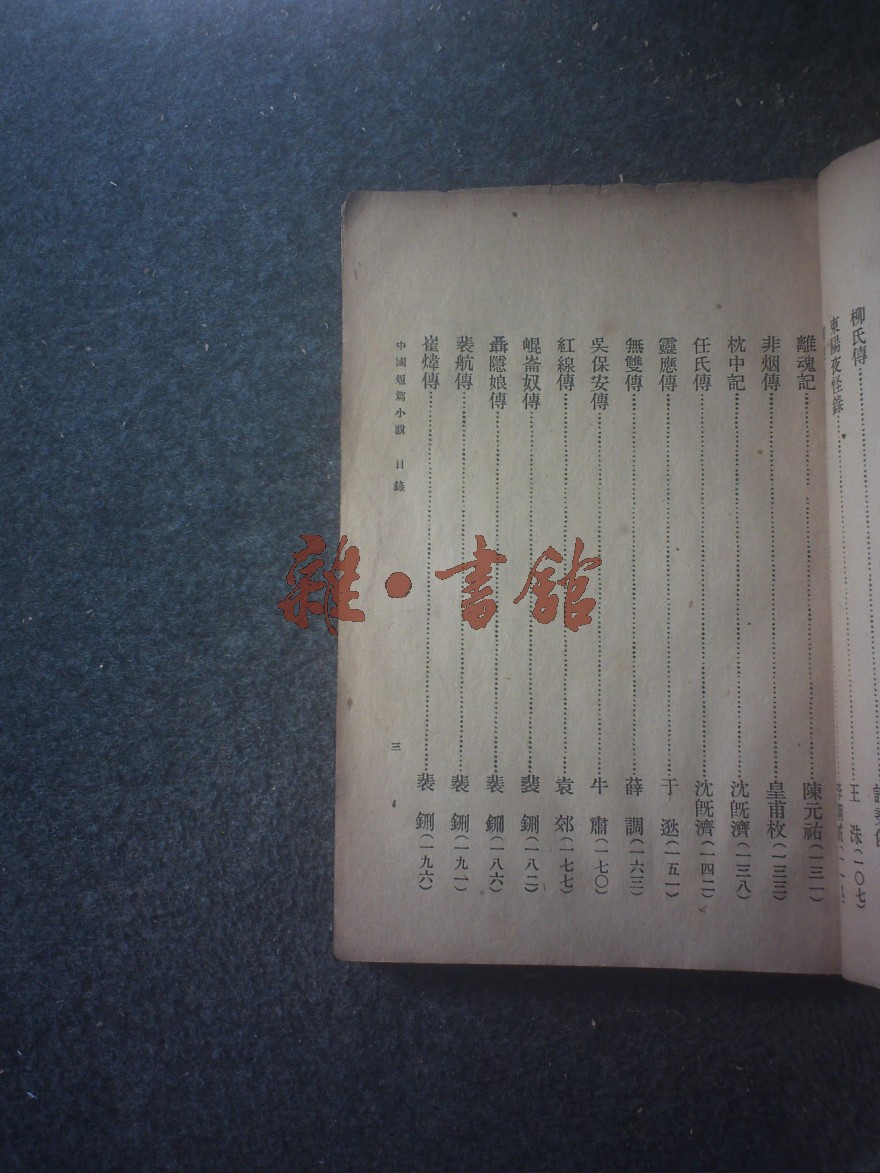 柳氏傳
東陽夜怪錄 王洙(一〇七)
離魂記 陳元祐(一三一)
非烟傳 皇甫枚(一三三)
枕中記 沈旣濟(一三八)
任氏傳 沈旣濟(一四二)
靈應傳 于逖(一五一)
無雙傳 薛調(一六三)
吳保安傳 牛肅(一七〇)
紅線傳 袁郊(一七七)
崐崙奴傳 裴鉶(一八二)
聶隱娘傳 裴鉶(一八六)
裴航傳 裴鉶(一九一)
崔煒傳 裴鉶(一九六)
中國短篇小說 目錄 三
雜·書館